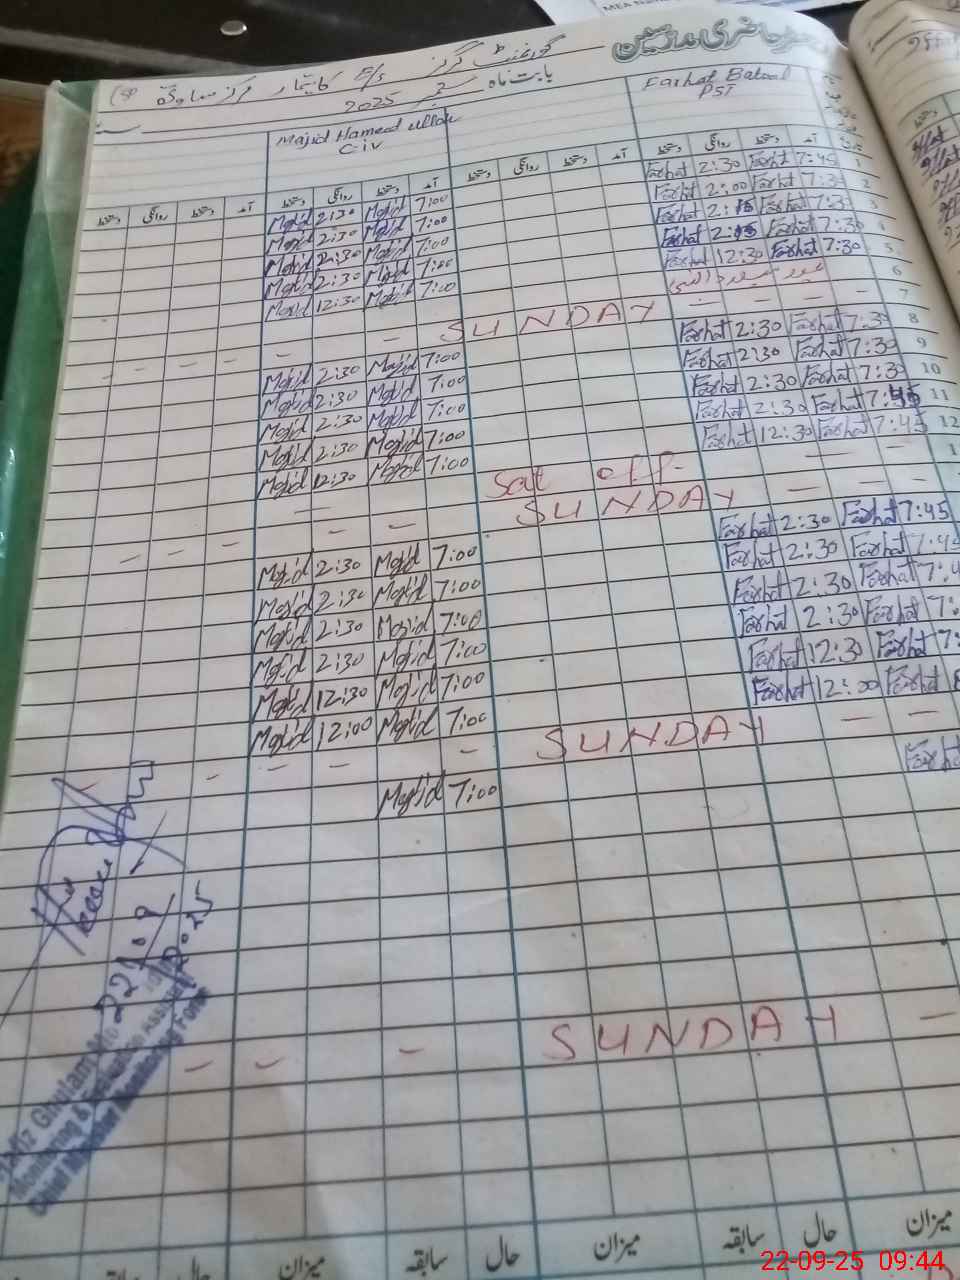 حاضری ملازمین
گورنمنٹ گرلز E/S
بابت ماہ ستمبر 2025
Farhat Batool
PST
Majid Hameed ullah
C-iv
دستخط روانگی دستخط آمد دستخط روانگی دستخط آمد دستخط روانگی دستخط آمد دستخط روانگی دستخط آمد
Majid 2:30 Majid 7:00 Farhat 2:30 Farhat 7:45 1
Majid 2:30 Majid 7:00 Farhat 2:00 Farhat 7:30 2
Majid 2:30 Majid 7:00 Farhat 2:15 Farhat 7:30 3
Majid 2:30 Majid 7:00 Farhat 2:15 Farhat 7:30 4
Majid 12:30 Majid 7:00 Farhat 12:30 Farhat 7:30 5
عید میلاد النبی 6
SUNDAY 7
Majid 2:30 Majid 7:00 Farhat 2:30 Farhat 7:30 8
Majid 2:30 Majid 7:00 Farhat 2:30 Farhat 7:30 9
Majid 2:30 Majid 7:00 Farhat 2:30 Farhat 7:30 10
Majid 2:30 Majid 7:00 Farhat 2:30 Farhat 7:45 11
Majid 12:30 Majid 7:00 Farhat 12:30 Farhat 7:45 12
Sat off
SUNDAY
Majid 2:30 Majid 7:00 Farhat 2:30 Farhat 7:45
Majid 2:30 Majid 7:00 Farhat 2:30 Farhat 7:45
Majid 2:30 Majid 7:00 Farhat 2:30 Farhat 7:4
Majid 2:30 Majid 7:00 Farhat 2:30 Farhat 7:
Majid 12:30 Majid 7:00 Farhat 12:30 Farhat 7:
Majid 12:00 Majid 7:00 Farhat 12:00 Farhat 8
SUNDAY
Majid 7:00 Farhat
SUNDAY
Hafiz Ghulam
Monitoring & Evaluation Assistant
Chief Minister Monitoring Force
میزان حال سابقہ میزان حال سابقہ میزان
22-09-25 09:44